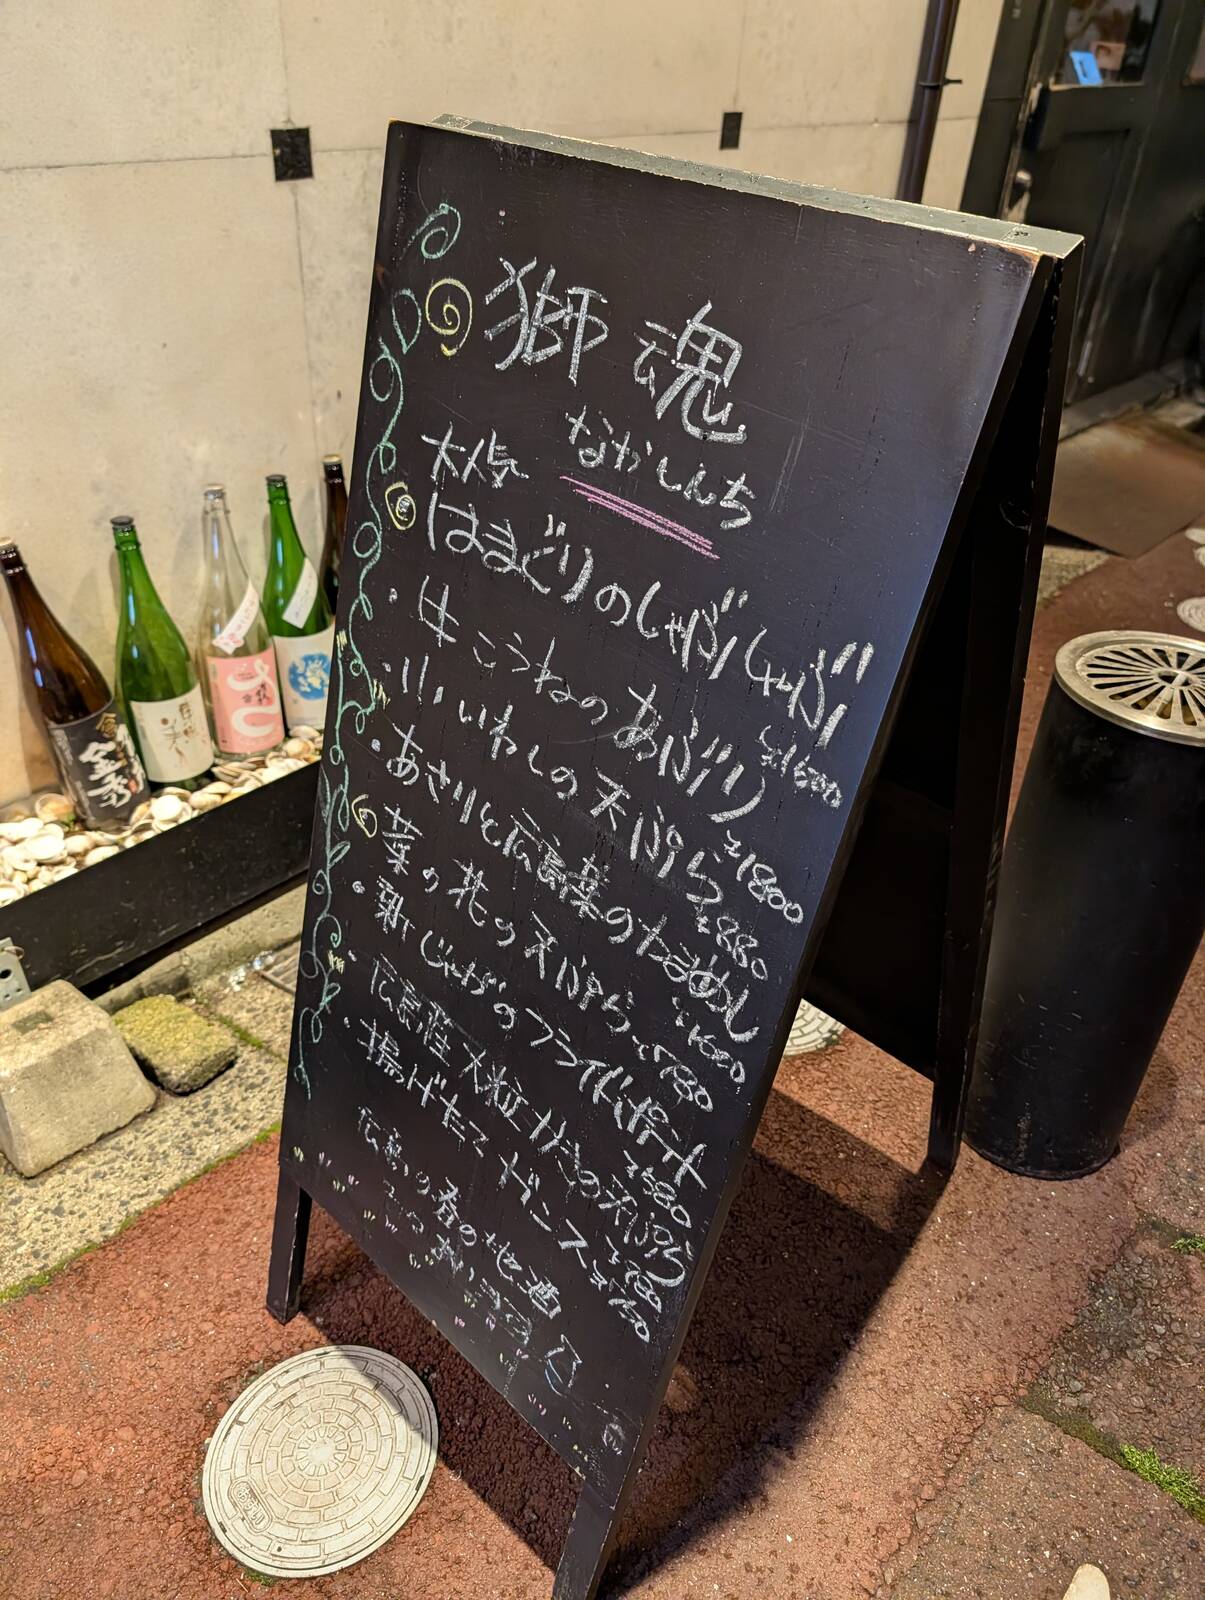 獅魂
なかしんち
大人気
はまぐりのしゃぶしゃぶ
¥1600
・牛こうねのあぶり ¥1800
・小いわしの天ぷら ¥880
・あさりと広島菜のたまめし
¥1000
菜の花の天ぷら ¥780
・新じゃがのフライドポテト
¥680
・広島産大粒かきの天ぷら
¥780
・揚げたこ
広島の春の地酒